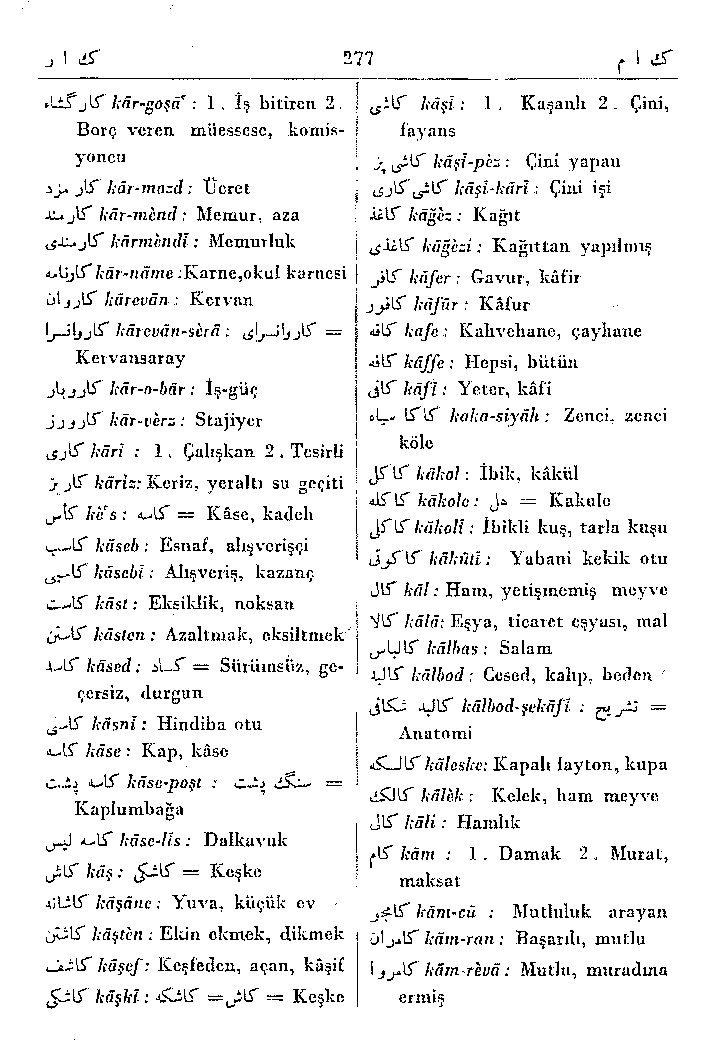 ك ا ر
277
ك ا م
كارگشاء kār-goşā' : 1. İş bitiren 2.
Borç veren müessese, komis-
yoncu
كار مزد kār-mozd : Ücret
كارمند kār-mènd : Memur, aza
كارمندی kārmèndī : Memurluk
كارنامه kār-nāme :Karne,okul karnesi
كاروان kārevān : Kervan
كاروانسرا kārevān-sèrā : كاروانسرای =
Kervansaray
كاروبار kār-o-bār : İş-güç
كارورز kār-vèrz : Stajiyer
كاری kārī : 1. Çalışkan 2. Tesirli
كاريز kāriz: Keriz, yeraltı su geçiti
كأس kè's : كاسه = Kâse, kadeh
كاسب kāseb : Esnaf, alışverişçi
كاسبی kāsebī : Alışveriş, kazanç
كاست kāst : Eksiklik, noksan
كاستن kāsten : Azaltmak, eksiltmek
كاسد kāsed : كساد = Sürümsüz, ge-
çersiz, durgun
كاسنی kāsnī : Hindiba otu
كاسه kāse : Kap, kâse
كاسه پشت kāse-poşt : سنگ پشت =
Kaplumbağa
كاسه ليس kāse-līs : Dalkavuk
كاش kāş : كاشكی = Keşke
كاشانه kāşāne : Yuva, küçük ev
كاشتن kāştèn : Ekin ekmek, dikmek
كاشف kāşef : Keşfeden, açan, kâşif
كاشكی kāşkī : كاشكه = كاش = Keşke
كاشی kāşī : 1. Kaşanlı 2. Çini,
fayans
كاشی پز kāşī-pèz : Çini yapan
كاشی كاری kāşī-kārī : Çini işi
كاغذ kāğèz : Kağıt
كاغذی kāğèzi : Kağıttan yapılmış
كافر kāfer : Gavur, kâfir
كافور kāfūr : Kâfur
كافه kafe : Kahvehane, çayhane
كافه kāffe : Hepsi, bütün
كافی kāfī : Yeter, kâfi
كاكا سياه kaka-siyāh : Zenci, zenci
köle
كاكل kākol : İbik, kâkül
كاكله kākole : هل = Kakule
كاكلی kākolī : İbikli kuş, tarla kuşu
كاكوتی kākūtī : Yabani kekik otu
كال kāl : Ham, yetişmemiş meyve
كالا kālā: Eşya, ticaret eşyası, mal
كالباس kālbas : Salam
كالبد kālbod : Cesed, kalıp, beden
كالبد شكافی kālbod-şekāfī : تشريح =
Anatomi
كالسكه kāleske: Kapalı fayton, kupa
كالك kālèk : Kelek, ham meyve
كالی kāli : Hamlık
كام kām : 1. Damak 2. Murat,
maksat
كامجو kām-cū : Mutluluk arayan
كامران kām-ran : Başarılı, mutlu
كامروا kām-rèvā : Mutlu, muradına
ermiş